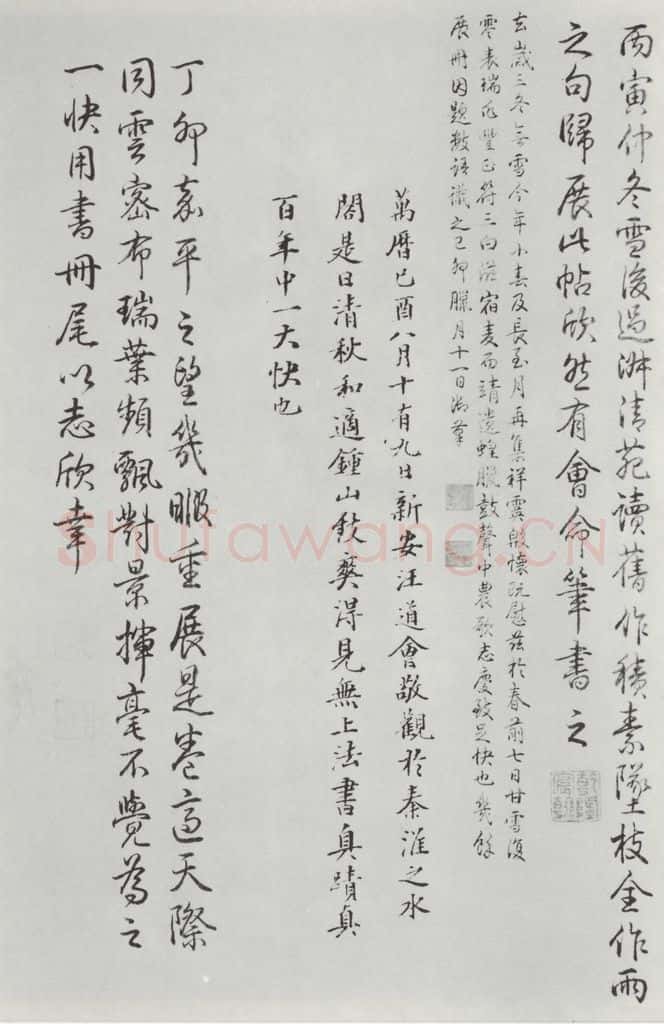 丙寅仲冬雪後過淋清苑讀舊作積素墜枝全作雨
之句歸展此帖欣然有會命筆書之
去歲三冬無雪今年小春及長至月再集祥霙殷懷既慰茲於春前七日甘雪復
零表瑞兆豐正符三白滋宿麥而靖遺蝗臘鼓聲中農歌志慶致足快也幾餘
展冊因題數語識之己卯臘月十一日御筆
萬曆己酉八月十有九日新安汪道會敬觀於秦淮之水
閣是日清秋和適鍾山獻爽得見無上法書真蹟真
百年中一大快也
丁卯嘉平之望幾暇重展是卷適天際
同雲密布瑞葉頻飄對景揮毫不覺為之
一快用書冊尾以志欣幸
Shufawang.CN